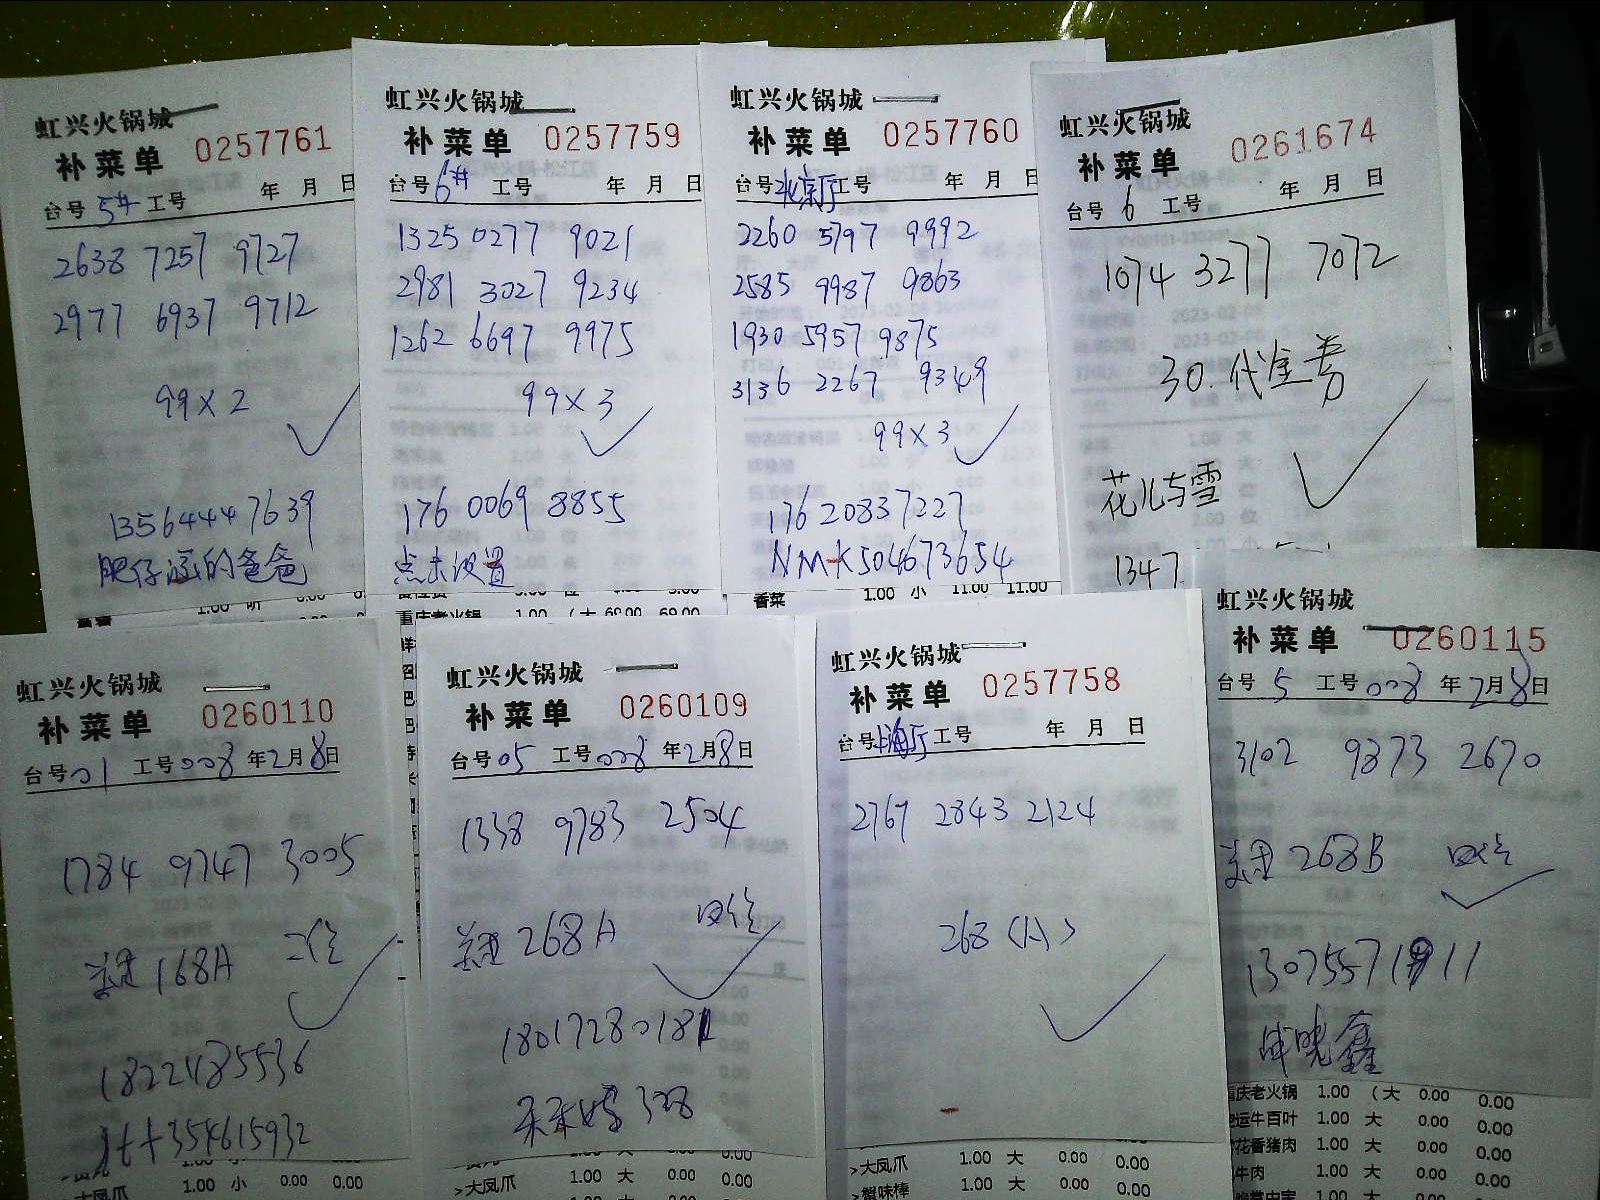 虹兴火锅城
补菜单 0257761
台号 5# 工号 年 月 日
2638 7257 9727
2977 6937 9712
99×2
13564447639
肥仔的爸爸
虹兴火锅城
补菜单 0257759
台号 6# 工号 年 月 日
1325 0277 9021
2981 3027 9234
1262 6697 9975
99×3
176 0069 8855
点击设置
虹兴火锅城
补菜单 0257760
台号 工号 年 月 日
2260 5797 9992
2585 9987 9863
1930 5957 9875
3136 2267 9349
99×3
176 20837227
NMK504673654
香菜 1.00 小 11.00 11.00
虹兴火锅城
补菜单 0261674
台号 6 工号 年 月 日
1074 3277 7072
30.代金券
花儿与雪
1347
重庆老火锅 1.00 (大 69.00 69.00
虹兴火锅城
补菜单 0260110
台号 01 工号 008 年 2月 8日
1784 9747 3005
美团 168A 二位
18221485536
jtt354615932
大凤爪 1.00 小 0.00 0.00
虹兴火锅城
补菜单 0260109
台号 05 工号 008 年 2月 8日
1338 9783 2504
美团 268A 四位
18017280181
328
>大凤爪 1.00 大 0.00 0.00
虹兴火锅城
补菜单 0257758
台号 工号 年 月 日
2767 2843 2124
268 (A)
>大凤爪 1.00 大 0.00 0.00
>蟹味棒 1.00 大 0.00 0.00
虹兴火锅城
补菜单 0260115
台号 5 工号 008 年 2月 8日
3102 9873 2670
美团 268B 四位
13075571911
晓鑫
重庆老火锅 1.00 (大 0.00 0.00
运牛百叶 1.00 大 0.00 0.00
花香猪肉 1.00 大 0.00 0.00
牛肉 1.00 大 0.00 0.00
1.00 大 0.00 0.00